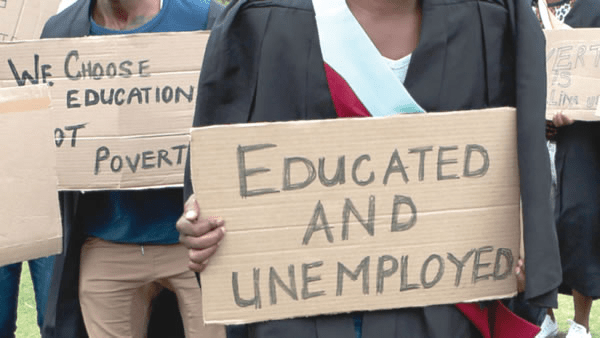 WE CHOOSE
EDUCATION
OT
POVERT
EDUCATED
AND
UNEMPLOYED
VERT
IS